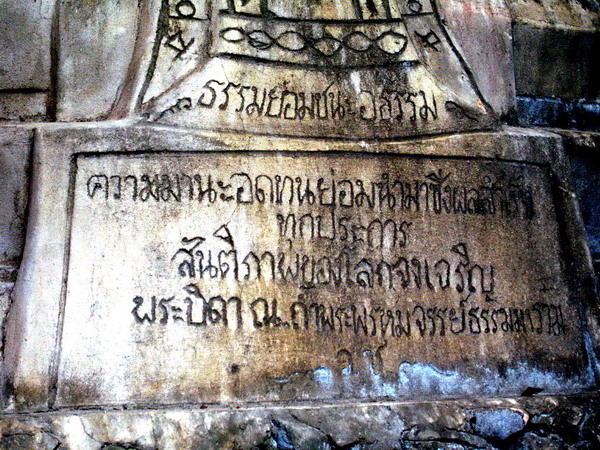 ธรรมย่อมชนะอธรรม
ความมานะอดทนย่อมนำมาซึ่งผลสำเร็จ
ทุกประการ
สันติภาพของโลกจงเจริญ
พระบิดา ณ ถ้ำพระพรหมจรรย์ธรรม